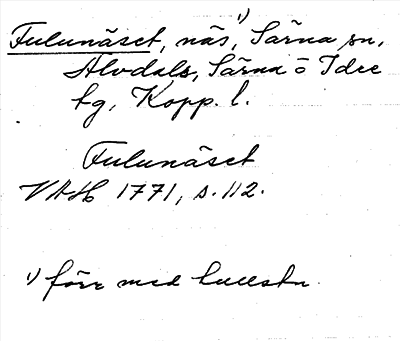 Fulunäset, näs,¹) Särna sn,
Älvdals, Särna o Idre
tg, Kopp. l.
Fulunäset
VAH 1771, s. 112.
¹) förr med bebebyggelse